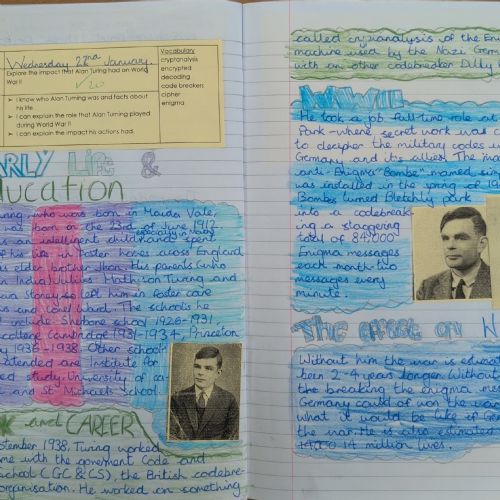 Wednesday 22nd January
Explore the impact that Alan Turing had on World
War II
I know who Alan Turning was and facts about
his life.
I can explain the role that Alan Turning played
during World War II
I can explain the impact his actions had.
Vocabulary
cryptanalysis
encrypted
decoding
code breakers
cipher
enigma
ARLY Life &
ducation
ring, who was born in Maida Vale,
was born on the 23rd of June 1912
especially in maths
s an intelligent child and spent
of his life in foster homes across England
s elder brother Jhon. His parents (who
India) Julius Mathison Turing and
ra Stoney so left him in foster care
and ward. The schools he
include Sherbone school 1926-1931,
college Cambridge 1931-1934, Princeton
y 1936-1938. Other schools
attended are Institute for
ed study, University of ca-
and St Michaels School.
and CAREER
ptember 1938, Turing worked
me with the goverment Code and
School (GC & CS), the British codebre-
organisation. He worked on something
called cryanalysis of the En
machine used by the Nazi Germ
with an other codebreaker Dilly
WWII
He took a job full-time role at
Park - where secret work was
to decipher the military codes u
Germany and it's allies. The ma
anti-Enigma "Bombe" named
was installed in the spring of 19
Bombs turned Bletchly park
into a codebreak-
ing a staggering
total of 84,000
Enigma messages
each month - two
messages every
minute.
The effect on
Without him the war is estima
been 2-4 years longer. Without
the breaking the enigma
Germany could of won the war
what it would be like if Ger
the war. He is also estimated
14 million lives.